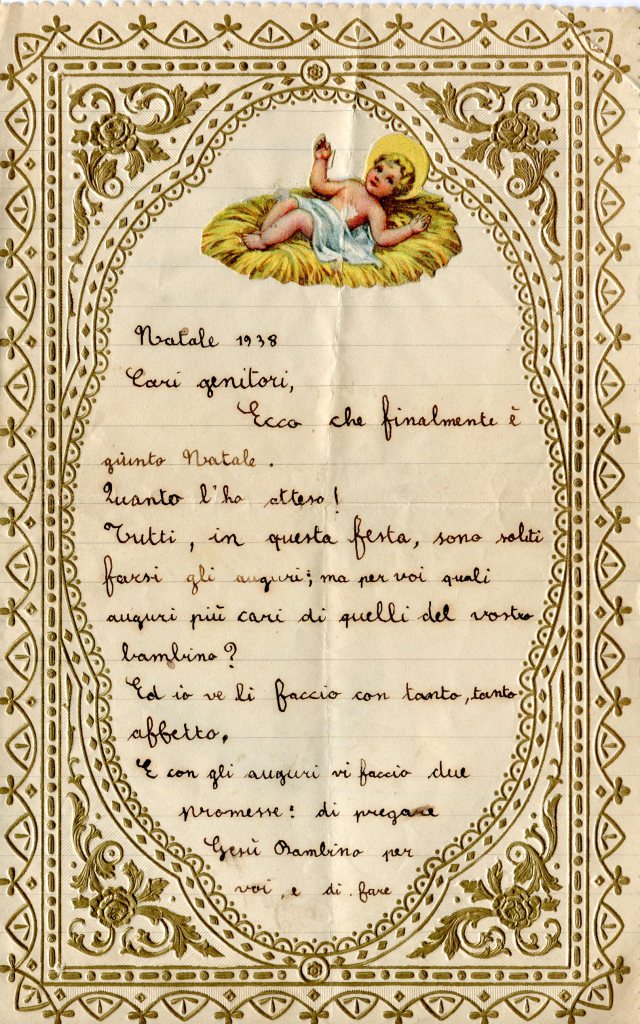 Natale 1938
Cari genitori,
Ecco che finalmente è
giunto Natale.
Quanto l'ho atteso!
Tutti, in questa festa, sono soliti
farsi gli auguri; ma per voi quali
auguri più cari di quelli del vostro
bambino?
Ed io ve li faccio con tanto, tanto
affetto.
E con gli auguri vi faccio due
promesse: di pregare
Gesù Bambino per
voi, e di fare